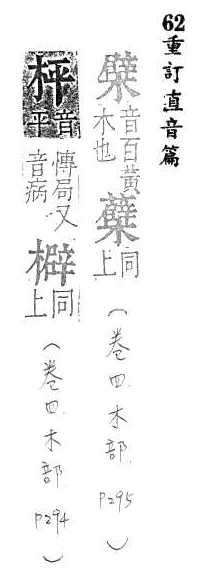 62重訂直音篇
檗音百黃木也蘗同上（卷四.木部 P295）
枰音平愽局又音病檘同上（卷四.木部 P294）